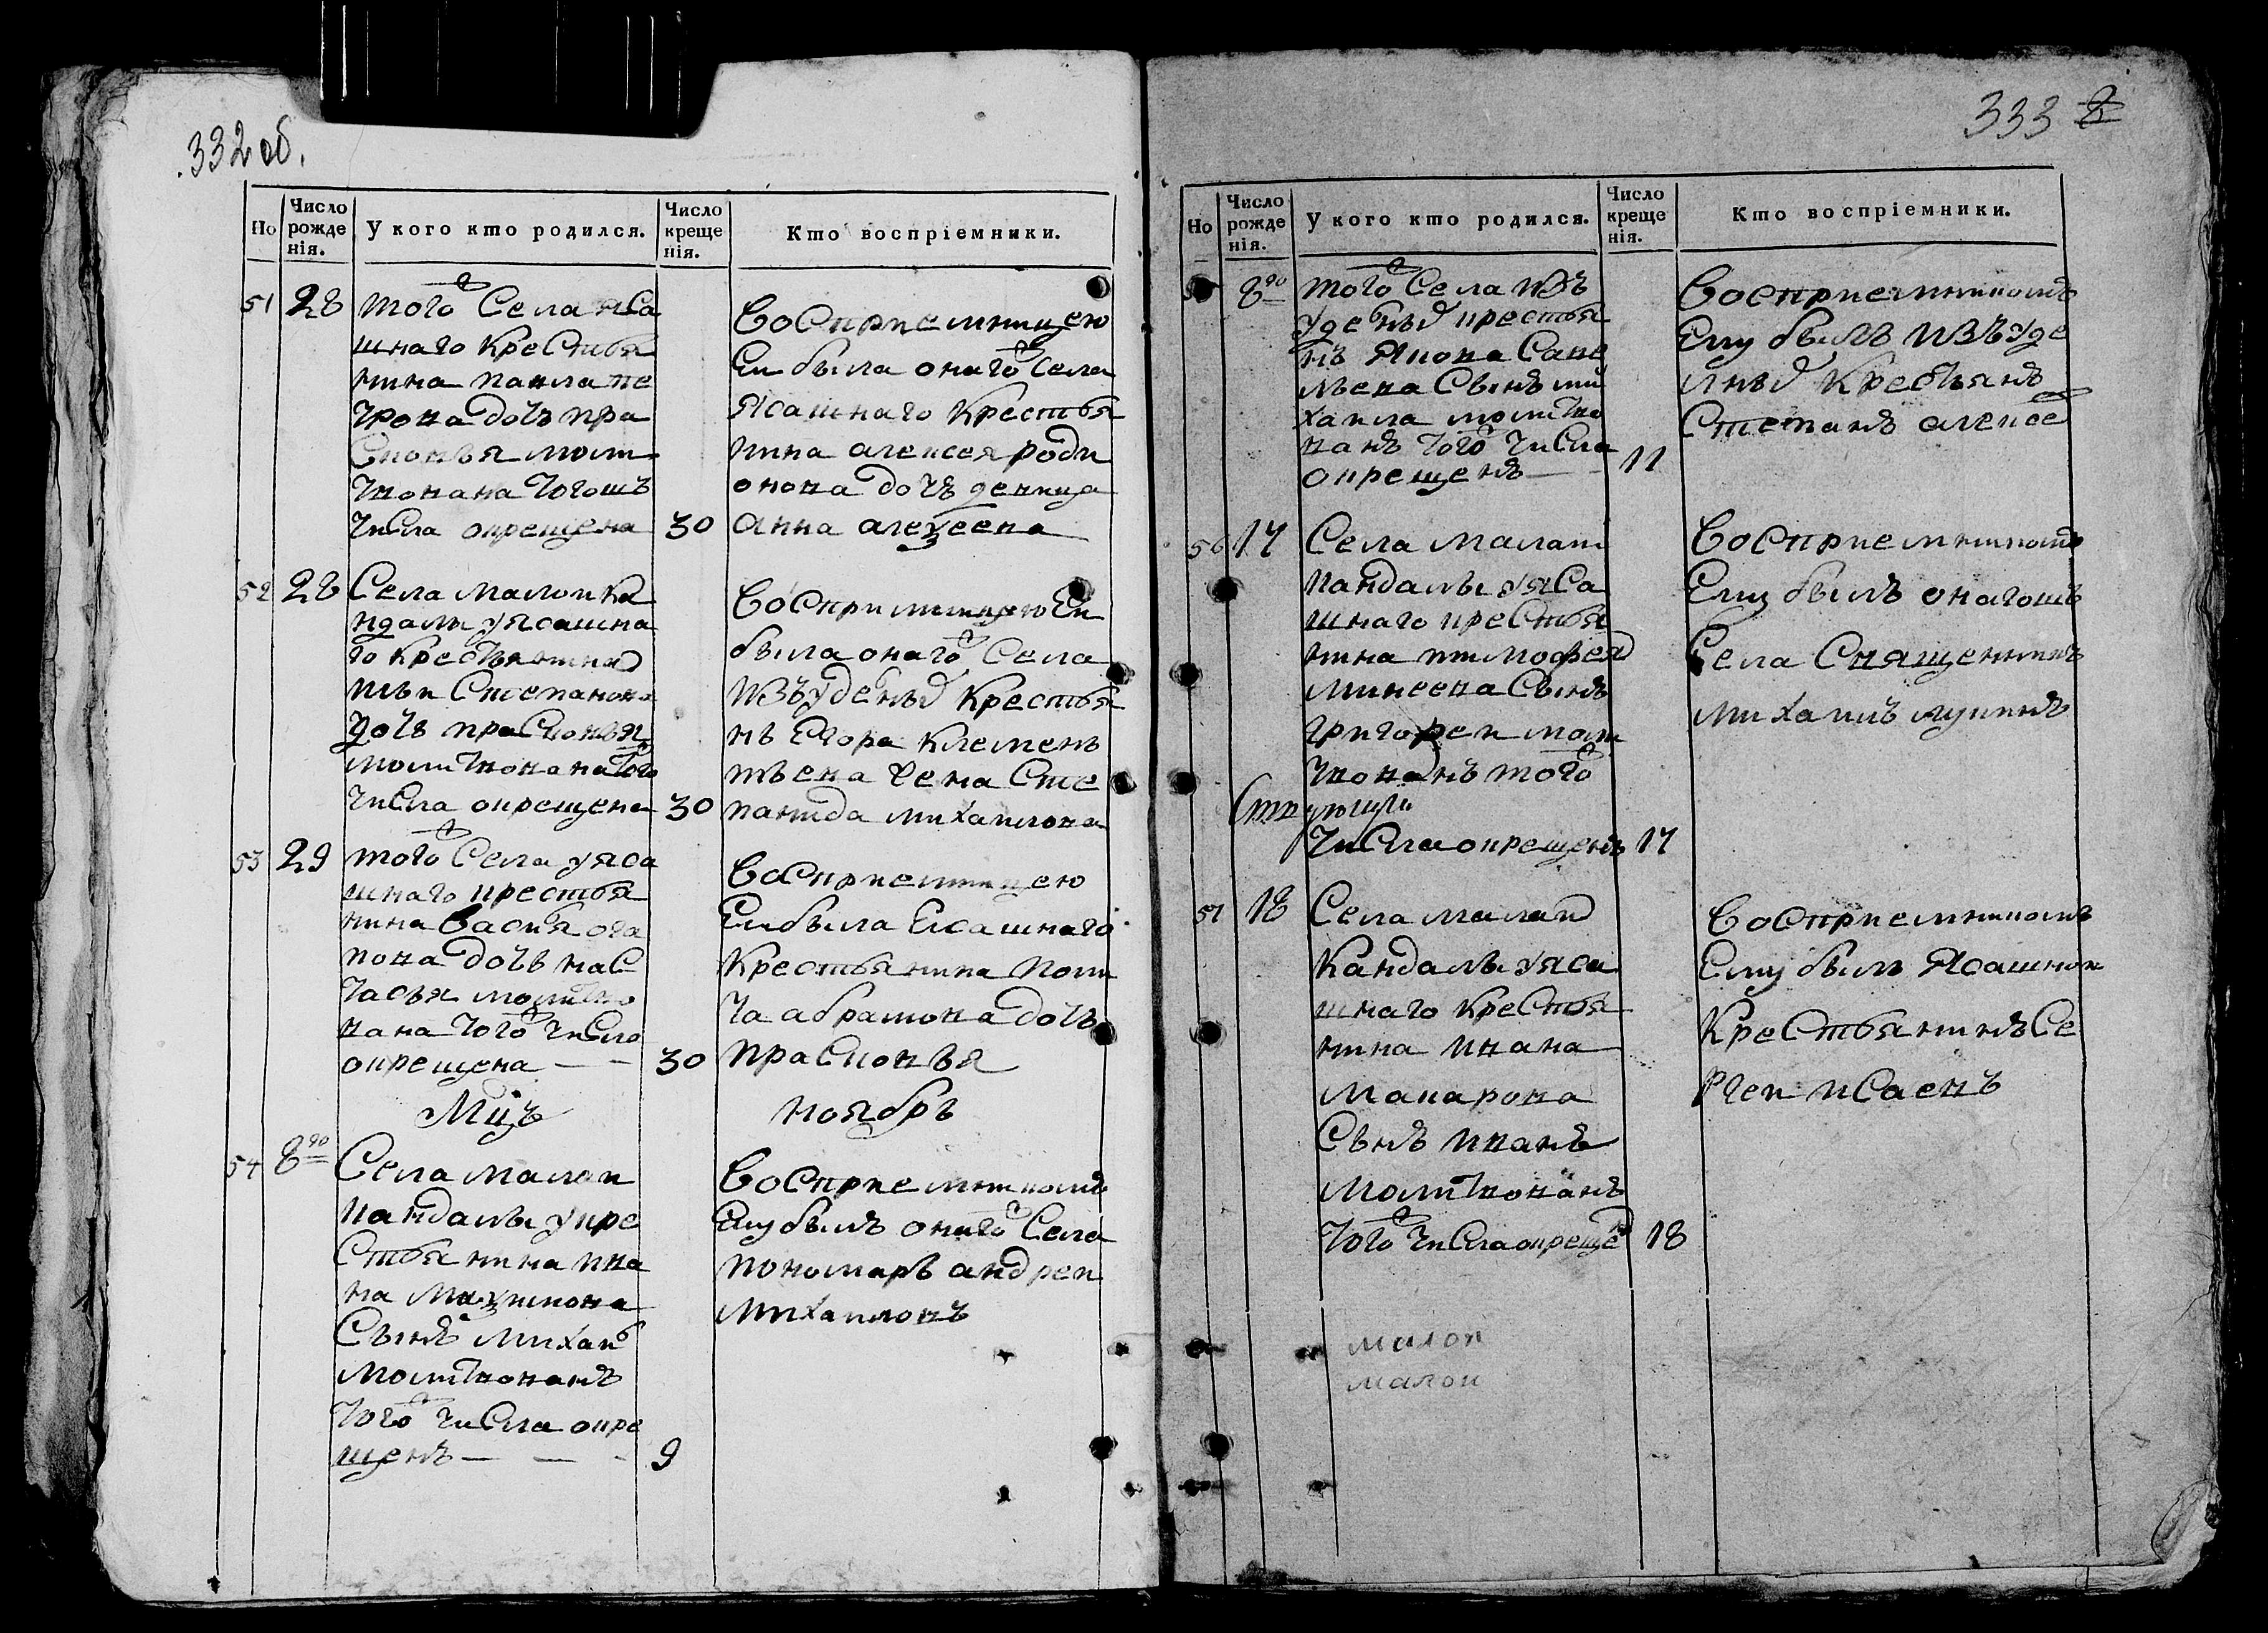 332 об.
Но
Число рожде нія.
У кого кто родился.
Число креще нія.
Кто воспріемники.
51
28
того Села яса
шнаго крестья
нина павла пе
трова дочь пра
сковья молит
вована тогошъ
числа окрещена
30
Восприемницею
Еи была онаго села
Ясашнаго крестья
нина алексея роди
онова дочь девица
анна алеѯеева
52
28
Села малои ка
ндалы уясашна
го крестьянина
Степанова
дочь прасковья
молитвована того
числа окрещена
30
Восприимницею Еи
была онаго Села
Изъ уделных крестья
нъ Егора клемень
тьева жена Сте
панида михаилова
53
29
того Села уяса
шнаго крестья
нина Василья ага
пова дочь нас
тасья молитво
вана того числа
окрещена
30
Восприемницею
Еи была Ясашнаго
крестьянина
абрамова дочь
прасковья
Мцъ
ноябрь
54
8го
Села малои
кандалы укре
стьянина ива
на
Сынъ михаи
молитвованъ
того числа окре
щенъ
9
Восприемникомъ
Ему былъ онаго Села
пономарь андреи
михаиловъ
333
Но
Число рожде нія.
У кого кто родился.
Число креще нія.
Кто воспріемники.
8го
того Села изъ
уделных крестья
нъ Якова Саве
льева Сынъ ми
хаила молитво
ванъ того числа
окрещенъ
11
Восприемникомъ
Ему былъ изъ уде
лных крестьянъ
Степанъ алексеев
56
17
Села малаи
кандалы уяса
шнаго крестья
нина тимофея
минеева Сынъ
григореи молит
вованъ того
числа окрещенъ
17
Восприемникомъ
Ему былъ онагошъ
Села Священникъ
михаилъ лукинъ
57
18
Села малаи
кандалы уяса
шнаго крестья
нина ивана
макарова
Сынъ иванъ
молитвованъ
того числа окреще
18
Восприемникомъ
Ему былъ Ясашнои
крестьянинъ Се
ргеи исаевъ
малои
малои